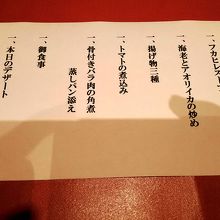 一、フカヒレスー
一、海老とアオリイカの炒め
一、揚げ物三種
一、トマトの煮込み
一、骨付きバラ肉の角煮
蒸しパン添え
一、御食事
一、本日のデザート